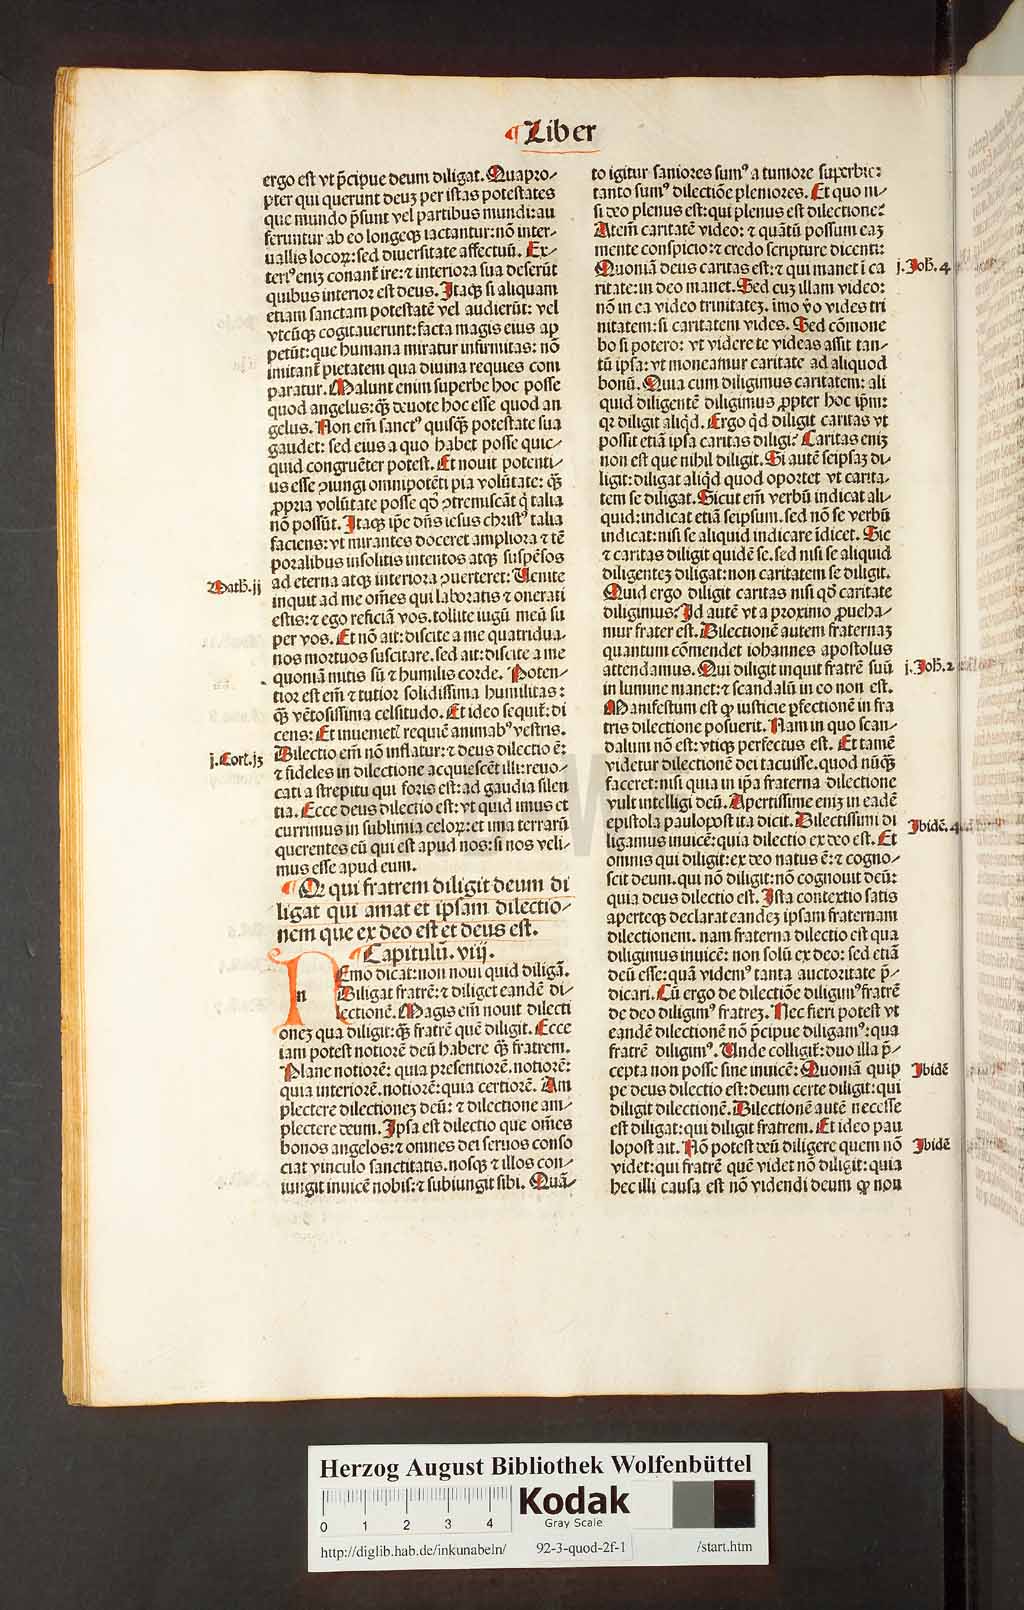 ¶ Liber
ergo est vt p̄cipue deum diligat. Quapro⸗
pter qui querunt deuʒ per istas potestates
que mundo p̄sunt vel partibus mundi: au
feruntur ab eo longeqʒ iactantur: nō inter⸗
uallis locoꝝ: sed diuersitate affectuū. Ex⸗
teriꝰ eniʒ conant᷑ ire: ⁊ interiora sua deserūt
quibus interior est deus. Itaqʒ si aliquam
etiam sanctam potestatē vel audierūt: vel
vtcūqʒ cogitauerunt: facta magis eius ap
petūt: que humana miratur infirmitas: nō
imitant᷑ pietatem qua diuina requies com
paratur. Malunt enim superbe hoc posse
quod angelus: qʒ̄ deuote hoc esse quod an
gelus. Non em̄ sanctꝰ quisqʒ̄ potestate sua
gaudet: sed eius a quo habet posse quic⸗
quid congruēter potest. Et nouit potenti⸗
us esse ꝯiungi omnipotēti pia volūtate: qʒ̄
ꝓpria volūtate posse qḋ ꝯtremiscāt q̇ talia
nō possūt. Itaqʒ ip̄e dn̄s iesus christꝰ talia
faciens: vt mirantes doceret ampliora ⁊ tē
poralibus insolitis intentos atqʒ suspēsos
Math. jj
ad eterna atqʒ interiora ꝯuerteret: Uenite
inquit ad me om̄es qui laboratis ⁊ onerati
estis: ⁊ ego reficiā vos. tollite iugū meū su
per vos. Et nō ait: discite a me quatridua⸗
nos mortuos suscitare. sed ait: discite a me
quoniā mitis sū ⁊ humilis corde. Poten⸗
tior est em̄ ⁊ tutior solidissima humilitas:
qʒ̄ vētosissima celsitudo. Et ideo sequit᷑: di
cens: Et inueniet᷑ requiē animabꝰ vestris.
j. Cort. jʒ
Dilectio em̄ nō inflatur: ⁊ deus dilectio ē:
⁊ fideles in dilectione acquiescēt illi: reuo⸗
cati a strepitu qui foris est: ad gaudia silen
tia. Ecce deus dilectio est: vt quid imus et
currimus in sublimia celoꝝ: et ima terrarū
querentes eū qui est apud nos: si nos veli⸗
mus esse apud eum.
¶ Qꝛ qui fratrem diligit deum di
ligat qui amat et ipsam dilectio⸗
nem que ex deo est et deus est.
¶ Capitulū. viij.
Nemo dicat: non noui quid diligā.
Diligat fratrē: ⁊ diliget eandē di⸗
lectionē. Magis em̄ nouit dilecti
oneʒ qua diligit: qʒ̄ fratrē quē diligit. Ecce
iam potest notiorē deū habere qʒ̄ fratrem.
Plane notiorē: quia presentiorē. notiorē:
quia interiorē. notiorē: quia certiorē. Am
plectere dilectioneʒ deū: ⁊ dilectione am⸗
plectere deum. Ipsa est dilectio que om̄es
bonos angelos: ⁊ omnes dei seruos conso
ciat vinculo sanctitatis. nosqʒ ⁊ illos con⸗
iungit inuicē nobis: ⁊ subiungit sibi. Quā⸗
to igitur saniores sumꝰ a tumore superbie:
tanto sumꝰ dilectiōe pleniores. Et quo ni⸗
si deo plenus est: qui plenus est dilectione?
Atem̄ caritatē video: ⁊ quātū possum eaʒ
mente conspicio: ⁊ credo scripture dicenti:
Quoniā deus caritas est: ⁊ qui manet ī ca
j. Joh̄. 4
ritate: in deo manet. Sed cuʒ illam video:
nō in ea video trinitateʒ. imo v̇o vides tri
nitatem: si caritatem vides. Sed cōmone
bo si potero: vt videre te videas assit tan⸗
tū ipsa: vt moneamur caritate ad aliquod
bonū. Quia cum diligimus caritatem: ali
quid diligentē diligimus ꝓpter hoc ip̄m:
qꝛ diligit aliq̇d. Ergo q̇d diligit caritas vt
possit etiā ipsa caritas diligi? Caritas eniʒ
non est que nihil diligit. Si autē seipsaʒ di⸗
ligit: diligat aliq̇d quod oportet vt carita⸗
tem se diligat. Sicut em̄ verbū indicat ali⸗
quid: indicat etiā seipsum. sed nō se verbū
indicat: nisi se aliquid indicare īdicet. Sic
⁊ caritas diligit quidē se. sed nisi se aliquid
diligenteʒ diligat: non caritatem se diligit.
Quid ergo diligit caritas nisi qḋ caritate
diligimus? Id autē vt a proximo ꝓueha⸗
mur frater est. Dilectionē autem fraternaʒ
quantum cōmendet iohannes apostolus
attendamus. Qui diligit inquit fratrē suū
j. Joh̄. 2
in lumine manet: ⁊ scandalū in eo non est.
Manifestum est ꝙ iusticie ꝑfectionē in fra
tris dilectione posuerit. Nam in quo scan⸗
dalum nō est: vtiqʒ perfectus est. Et tamē
videtur dilectionē dei tacuisse. quod nūqʒ̄
faceret: nisi quia in ip̄a fraterna dilectione
vult intelligi deū. Apertissime eniʒ in eadē
epistola paulopost ita dicit. Dilectissimi di
Ibidē. 4
ligamus inuicē: quia dilectio ex deo est. Et
omnis qui diligit: ex deo natus ē: ⁊ cogno⸗
scit deum. qui nō diligit: nō cognouit deū:
quia deus dilectio est. Ista contextio satis
aperteqʒ declarat eandeʒ ipsam fraternam
dilectionem. nam fraterna dilectio est qua
diligimus inuicē: non solū ex deo: sed etiā
deū esse: quā videmꝰ tanta auctoritate p̄⸗
dicari. Cū ergo de dilectiōe diligimꝰ fratrē
de deo diligimꝰ fratreʒ. Nec fieri potest vt
eandē dilectionē nō p̄cipue diligamꝰ: qua
fratrē diligimꝰ. Unde colligit᷑: duo illa p̄⸗
cepta non posse sine inuicē: Quoniā quip
Ibidē
pe deus dilectio est: deum certe diligit: qui
diligit dilectionē. Dilectionē autē necesse
est diligat: qui diligit fratrem. Et ideo pau
lopost ait. Nō potest deū diligere quem nō
Ibidē
videt: qui fratrē quē videt nō diligit: quia
hec illi causa est nō videndi deum ꝙ non
Herzog August Bibliothek Wolfenbüttel
0 1 2 3 4
Kodak
Gray Scale
http://diglib.hab.de/inkunabeln/ 92-3-quod-2f-1 /start.htm